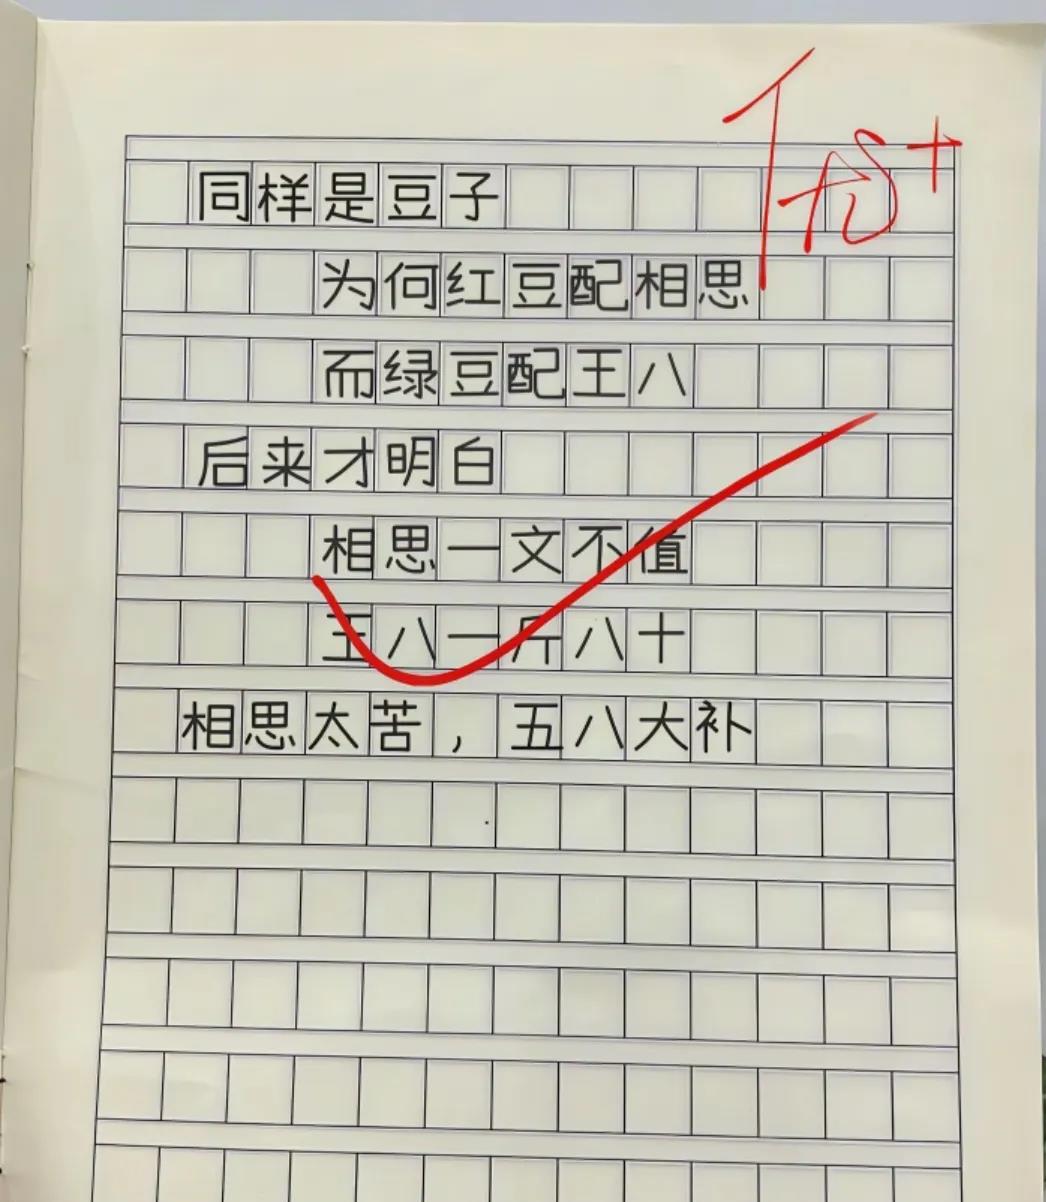 优+
同样是豆子
为何红豆配相思
而绿豆配王八
后来才明白
相思一文不值
王八一斤八十
相思太苦，五八大补